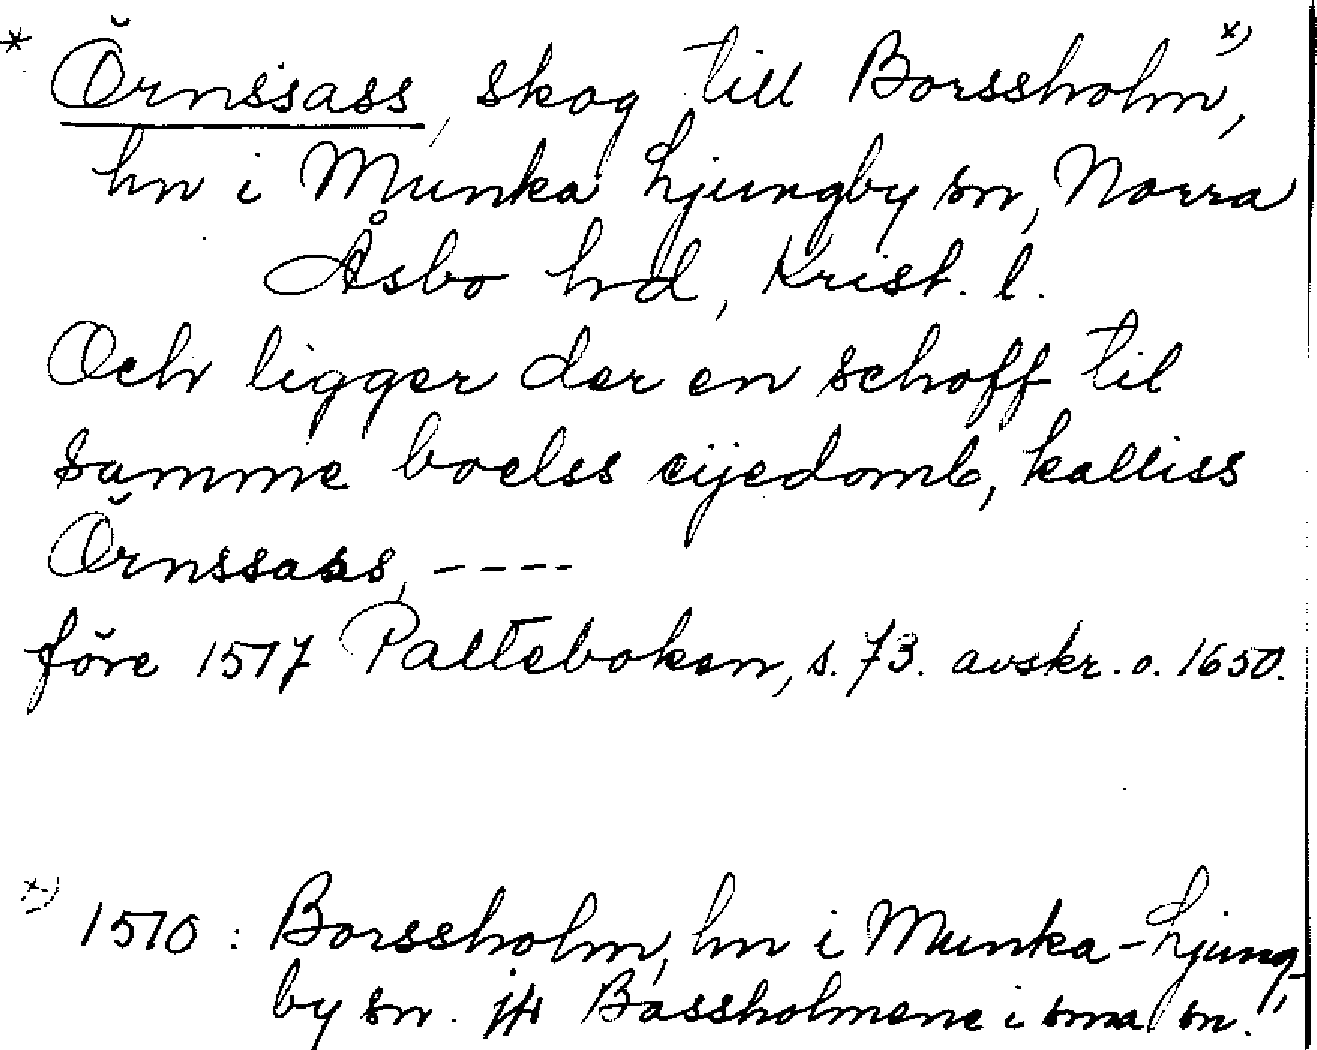 * Örnssass, skog till Borssholm x),
hn i Munka Ljungby sn, Norra
Åsbo hd, Krist. l.
Och ligger der en schoff til
samme boelss eijedomb, kalliss
Örnssass, ----
före 1517 Palteboken, s. 73. avskr. o. 1650.
x) 1510: Borssholm, hn i Munka-Ljung-
by sn. jfr Bassholmene i sma sn."